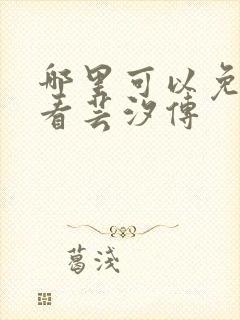 哪里可以免
看芸汐傳
葛浅